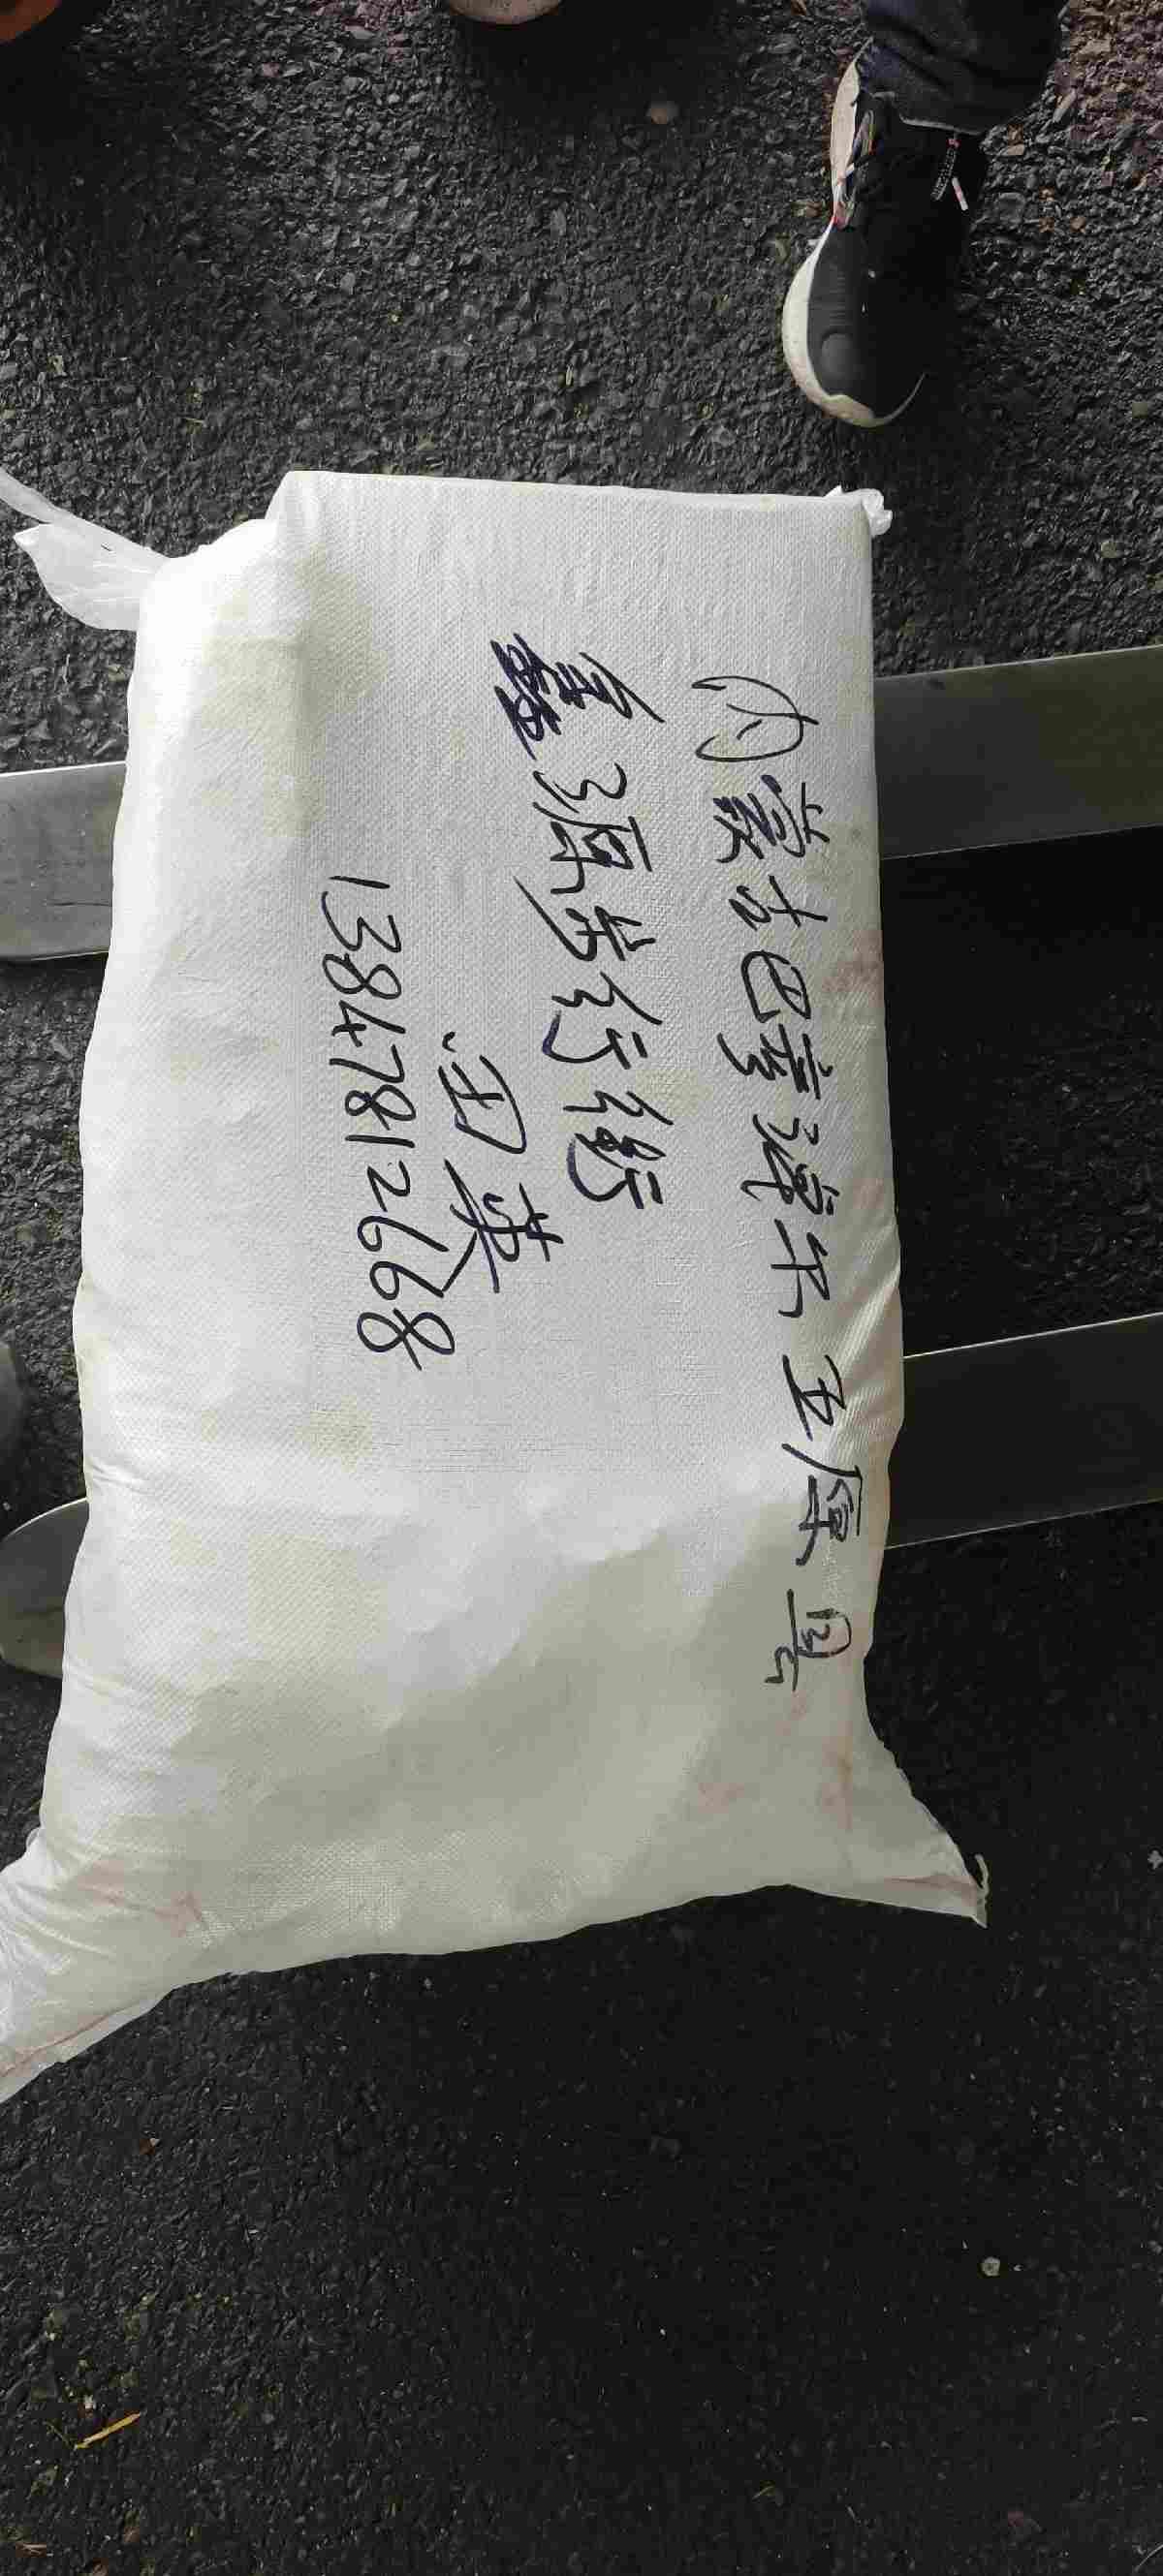 内蒙古巴彦淖尔五原县
鑫源步行街
田英
13847812668